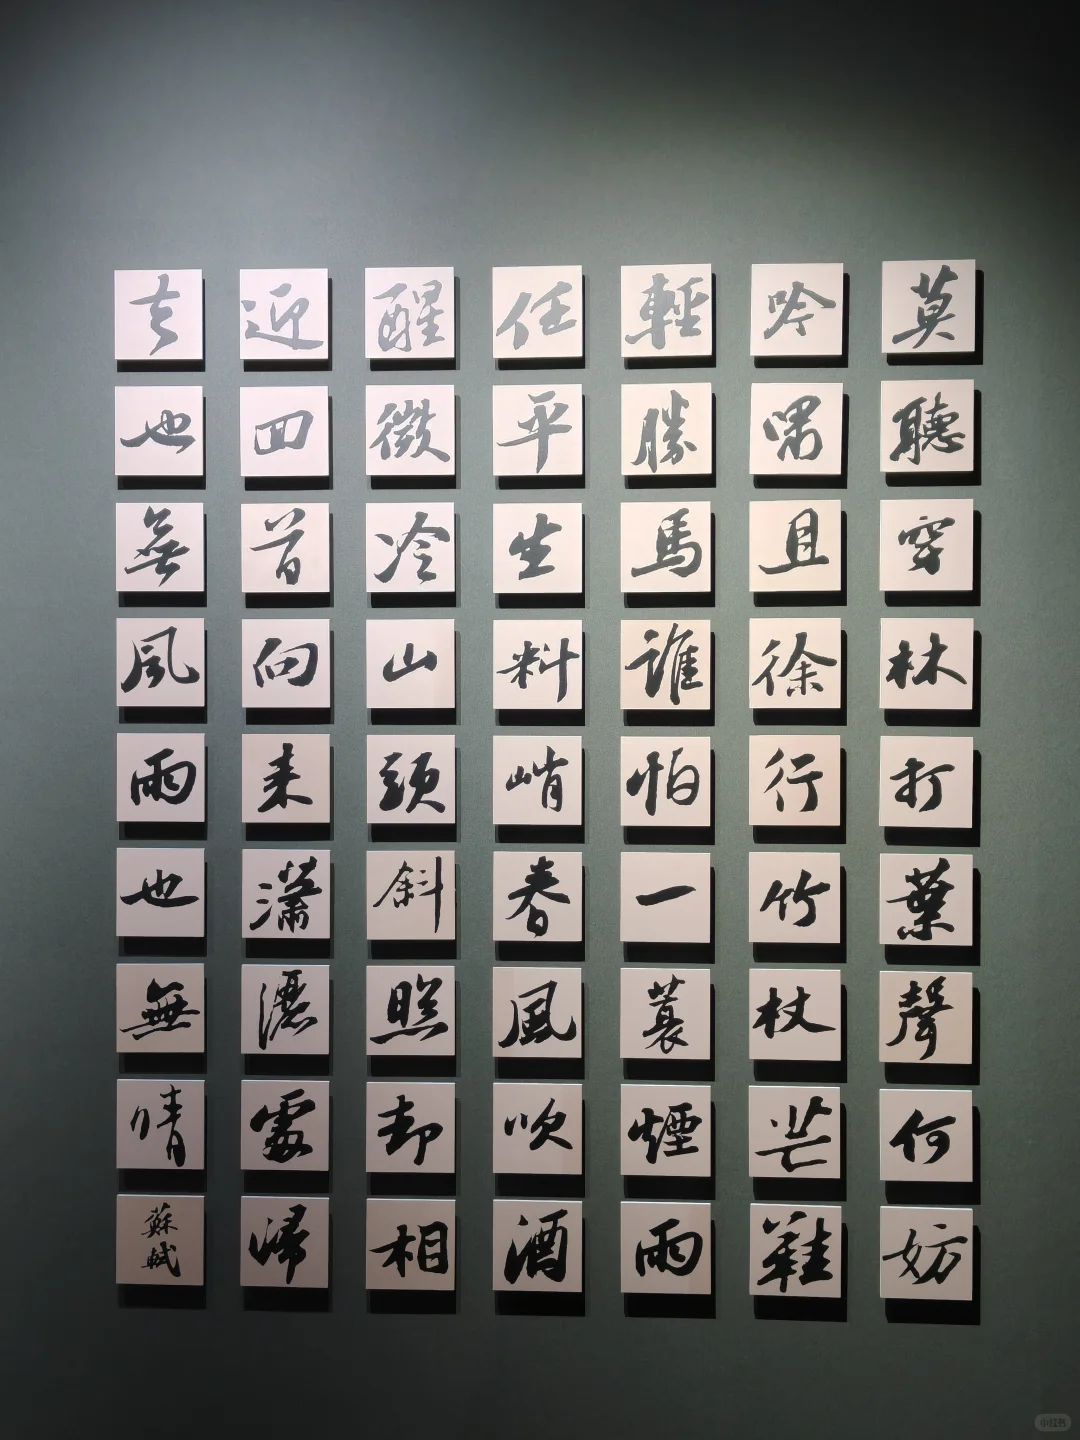 莫聽穿林打葉聲何妨
吟嘯且徐行竹杖芒鞋
輕勝馬誰怕一蓑煙雨
任平生料峭春風吹酒
醒微冷山頭斜照却相
迎回首向来瀟灑處歸
去也無風雨也無晴蘇軾
小红书